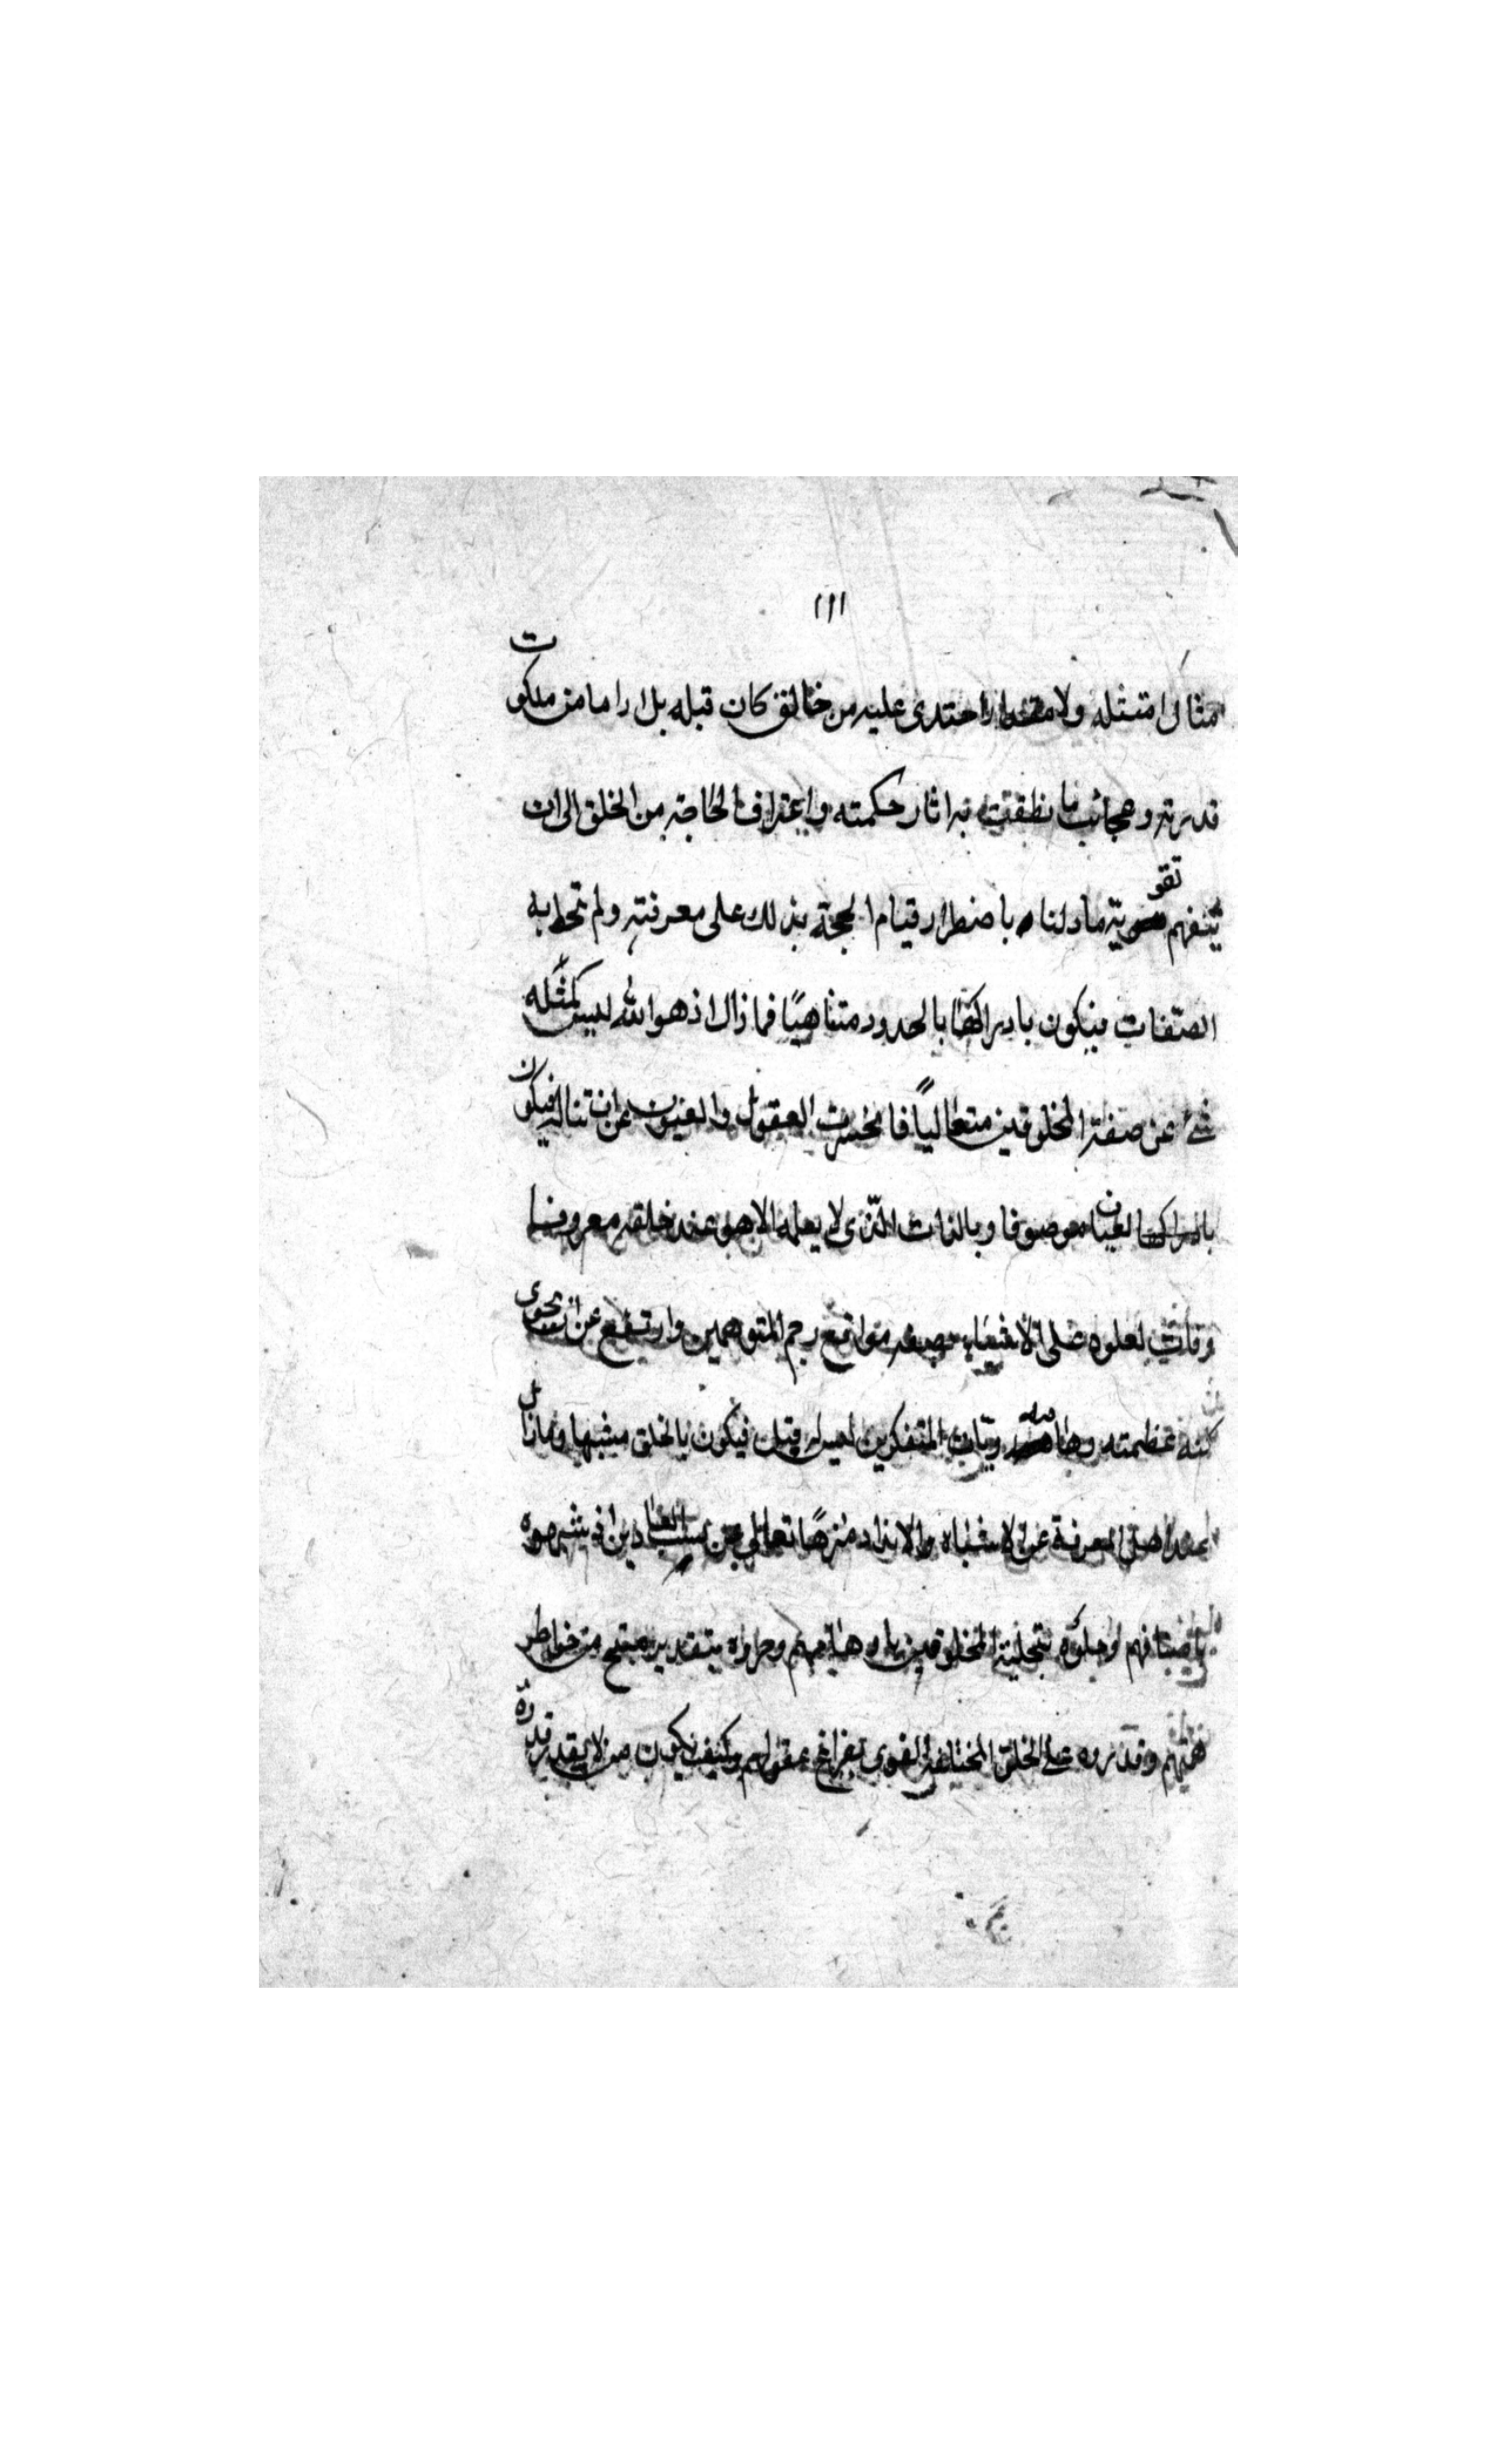 ١١١
مثال امتثله ولا مقدار احتذى عليه من خالق كان قبله بل ارا ما من ملكوت
قدرته وعجائب ما نطقت به اثار حكمته واعتراف الحاجة من الخلق الى ان
يفهم تقوية ما دلنا باضطرار قيام الحجة بذلك على معرفته ولم تحط به
الصفات فيكون بادراكها بالحدود متناهيًا فما زال اذ هو الله ليس كمثله
شئ عن صفة المخلوقين متعاليًا فانحسرت العقول والعيون عن ان تناله فيكون
بالعيان موصوفا وبالذات الذي لا يعلمه الا هو عند خلقه معروفا
وفات لعلوه على الاشياء مواقع رجم المتوهمين وارتفع عن ان تحوى
كنه عظمته رويّات المتفكرين ليس له مثل فيكون بالخلق مشبها وما زال
عند اهل المعرفة عن الاشباه والانداد منزهًا تعالى عن العادين اذ يشبهوه
باصنافهم او حلّوه بتحلية المخلوقين باوهامهم وجزوه بتقدير منتج من خواطر
هممهم وقدروه على الخلق المختلفة القوى بقرائح عقولهم وكيف يكون من لا يقدر قدره